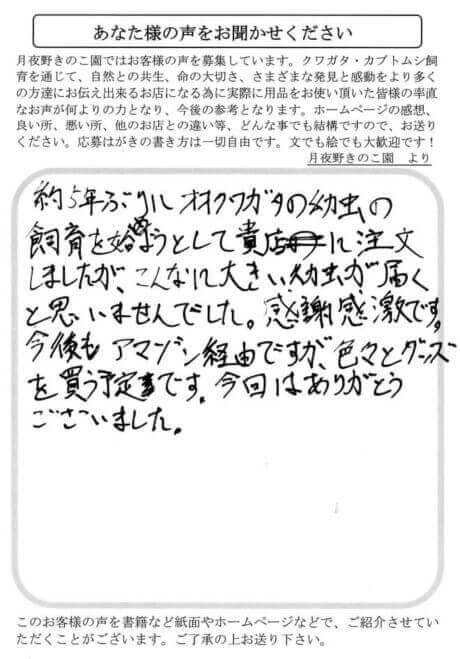 あなた様の声をお聞かせください
月夜野きのこ園ではお客様の声を募集しています。クワガタ・カブトムシ飼
育を通じて、自然との共生、命の大切さ、さまざまな発見と感動をより多く
の方達にお伝え出来るお店になる為に実際に用品をお使い頂いた皆様の率直
なお声が何よりの力となり、今後の参考となります。ホームページの感想、
良い所、悪い所、他のお店との違い等、どんな事でも結構ですので、お送り
ください。応募はがきの書き方は一切自由です。文でも絵でも大歓迎です！
月夜野きのこ園 より
約5年ぶりにオオクワガタの幼虫の
飼育を始めようとして貴店に注文
しましたが、こんなに大きい幼虫が届く
と思いませんでした。感謝感激です。
今後もアマゾン経由ですが、色々とグッズ
を買う予定です。今回はありがとう
ございました。
このお客様の声を書籍など紙面やホームページなどで、ご紹介させてい
ただくことがございます。ご了承の上お送り下さい。